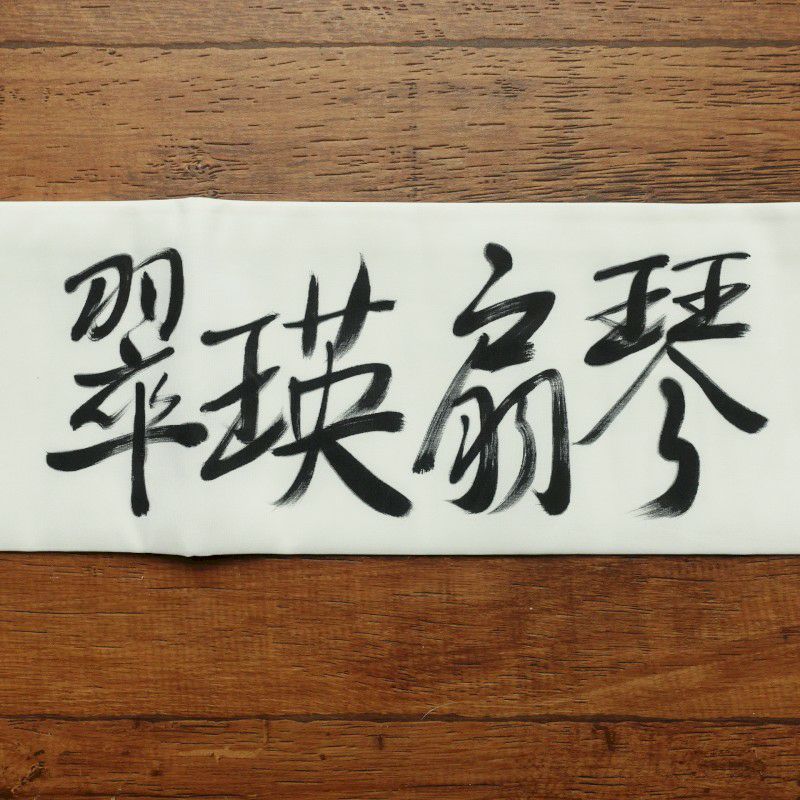 翠瑛扇琴